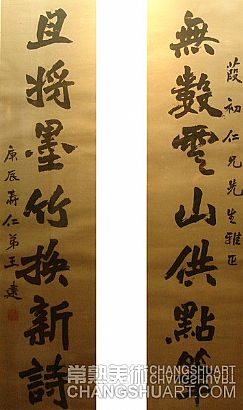 葭初仁兄先生雅正
無數雲山供點筆
且將墨竹換新詩
庚辰 仁弟王
常熟美術 CHANGSHUART
CHANGSHUART.COM